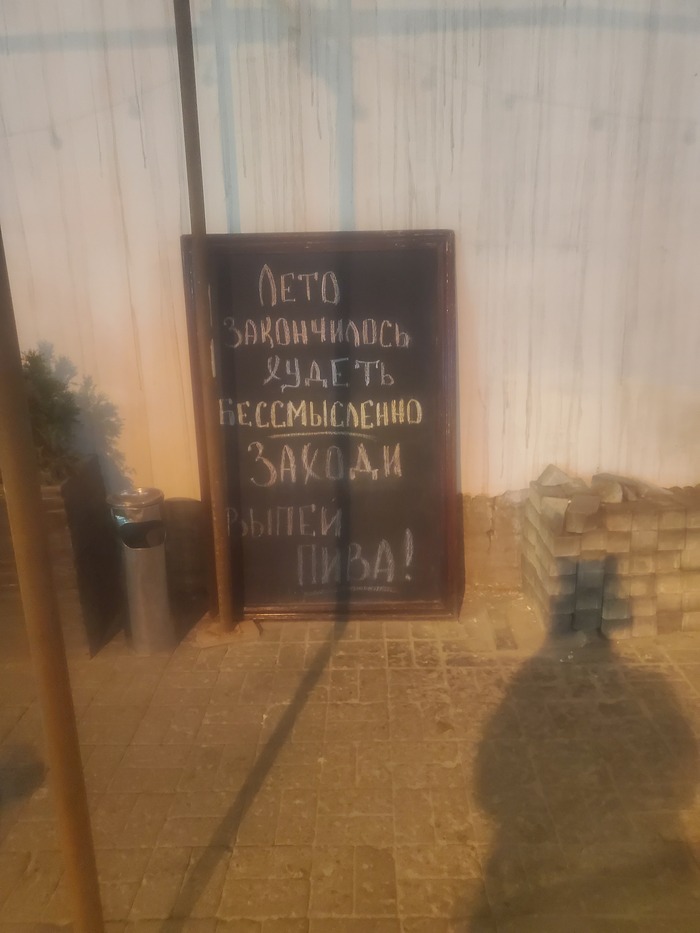 ЛЕТО
ЗАКОНЧИЛОСЬ
ХУДЕТЬ
БЕССМЫСЛЕННО
ЗАХОДИ
ВЫПЕЙ
ПИВА!